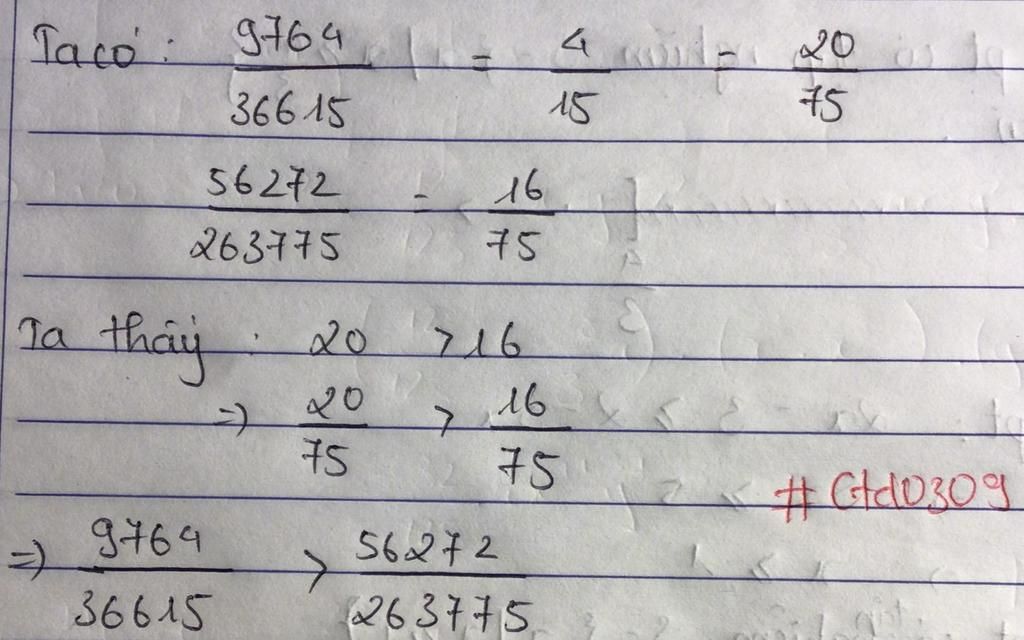 Ta có : 9764/36615 = 4/15 = 20/75
56272/263775 = 16/75
Ta thấy : 20 > 16
=> 20/75 > 16/75
#Gtd0309
=> 9764/36615 > 56272/263775